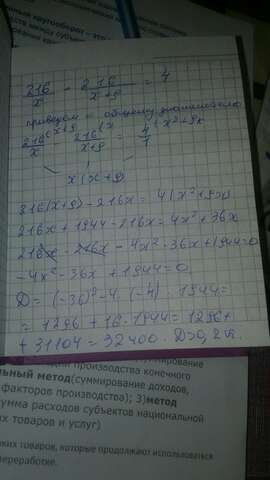 ный кругооборот – это
ств между субъе
216/x - 216/(x+9) = 4
приведём к общему знаменателю
216/x (x+9 - 216/(x+9) (x = 4/1 (x²+9x
x(x+9)
216(x+9) - 216x = 4(x²+9x)
216x + 1944 - 216x = 4x² + 36x
216x - 216x - 4x² - 36x + 1944 = 0
-4x² - 36x + 1944 = 0
D = (-36)² - 4 · (-4) · 1944 =
= 1296 + 16 · 1944 = 1296 +
+ 31104 = 32400. D>0, 2 к.
производства конечного
льный метод(суммирование доходов,
факторов производства); 3)метод
умма расходов субъектов национальной
их товаров и услуг)
ких товаров, которые продолжают использоваться
переработке.